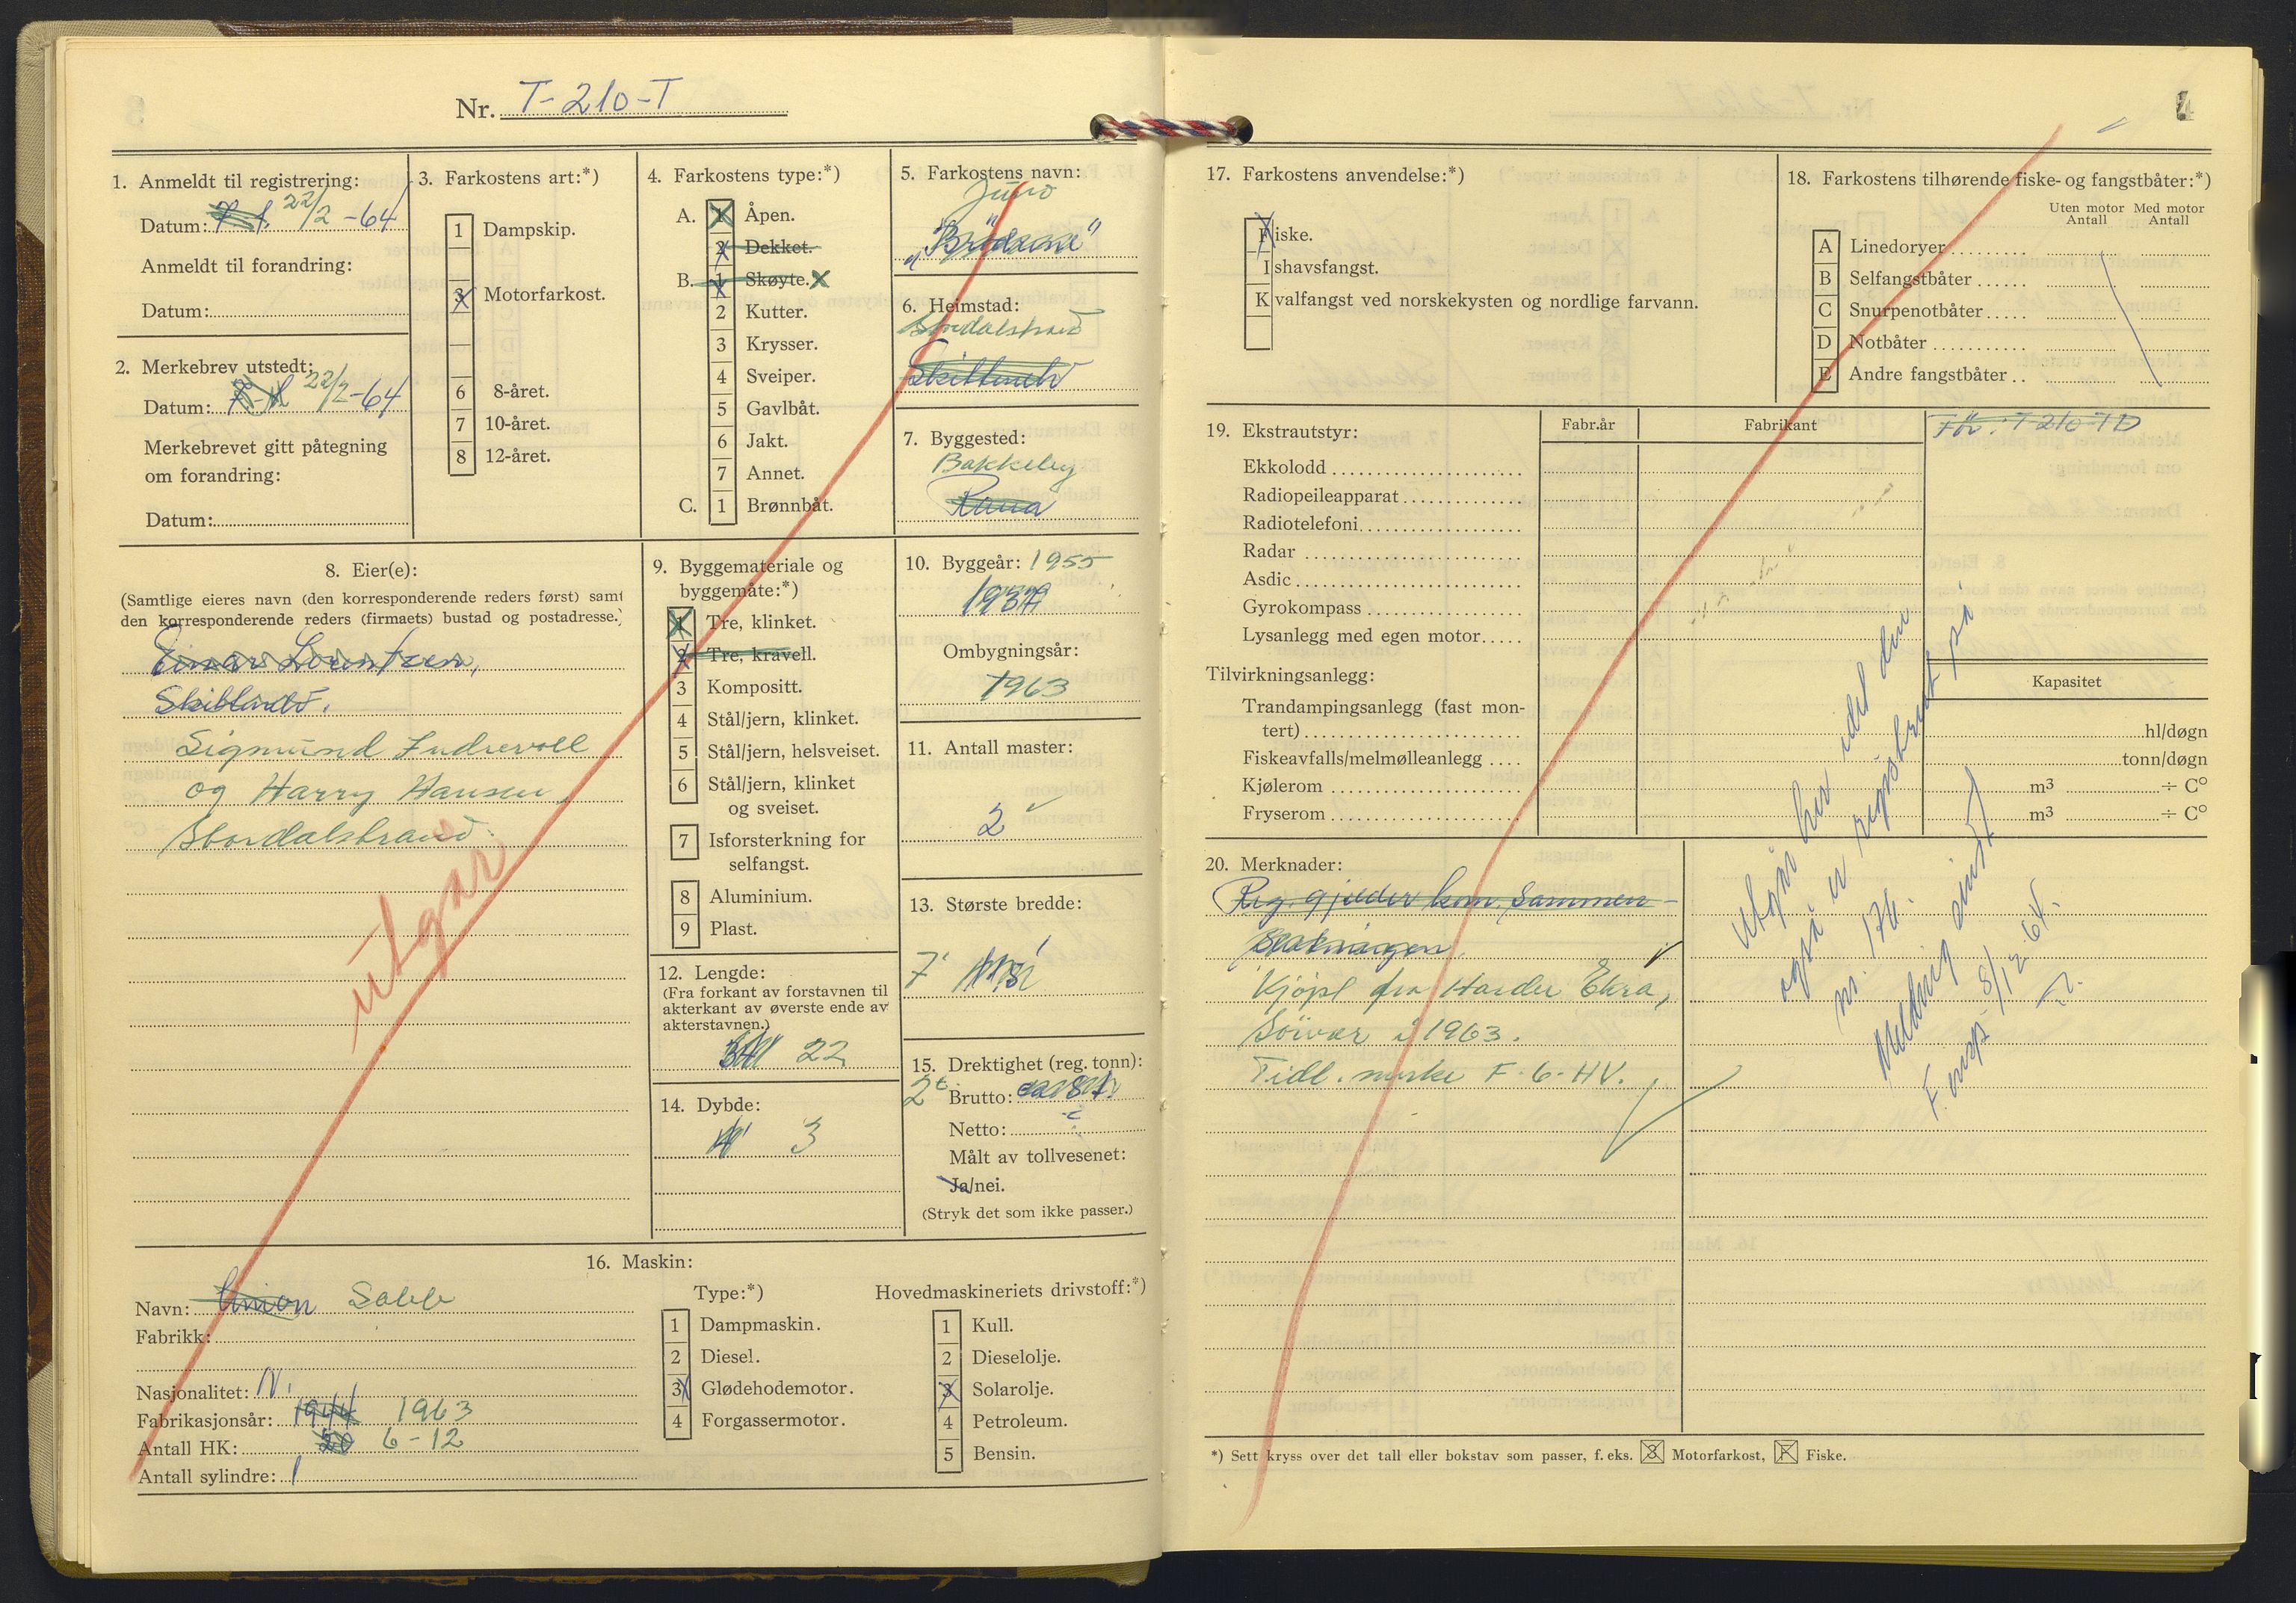 Nr. T-210-T
1. Anmeldt til registrering:
Datum: 22/2 -64
Anmeldt til forandring:
Datum:
2. Merkebrev utstedt:
Datum: 22/2 -64
Merkebrevet gitt påtegning
om forandring:
Datum:
3. Farkostens art:*)
1 Dampskip.
3 Motorfarkost.
6 8-året.
7 10-året.
8 12-året.
4. Farkostens type:*)
A. 1 Åpen.
2 Dekket.
B. 1 Skøyte. X
2 Kutter.
3 Krysser.
4 Sveiper.
5 Gavlbåt.
6 Jakt.
7 Annet.
C. 1 Brønnbåt.
5. Farkostens navn:
Juno
"Brødrene"
6. Heimstad:
Stordalstrand
7. Byggested:
Bakkeby
Rana
8. Eier(e):
(Samtlige eieres navn (den korresponderende reders først) samt
den korresponderende reders (firmaets) bustad og postadresse.)
Einar Lorentzen,
Sigmund Indrevoll
og Harry Hansen,
Stordalstrand.
utgår
9. Byggemateriale og
byggemåte:*)
1 Tre, klinket.
2 Tre, kravell.
3 Kompositt.
4 Stål/jern, klinket.
5 Stål/jern, helsveiset.
6 Stål/jern, klinket
og sveiset.
7 Isforsterkning for
selfangst.
8 Aluminium.
9 Plast.
10. Byggeår: 1955
Ombygningsår:
1963
11. Antall master:
2
12. Lengde:
(Fra forkant av forstavnen til
akterkant av øverste ende av
akterstavnen.)
22
13. Største bredde:
7'
14. Dybde:
3
15. Drektighet (reg. tonn):
2t. Brutto:
Netto:
Målt av tollvesenet:
Ja/nei.
(Stryk det som ikke passer.)
16. Maskin:
Navn: Union Sabb
Fabrikk:
Nasjonalitet: N.
Fabrikasjonsår: 1944 1963
Antall HK: 20 6-12
Antall sylindre: 1
Type:*)
1 Dampmaskin.
2 Diesel.
3 Glødehodemotor.
4 Forgassermotor.
Hovedmaskineriets drivstoff:*)
1 Kull.
2 Dieselolje.
3 Solarolje.
4 Petroleum.
5 Bensin.
4
17. Farkostens anvendelse:*)
Fiske.
Ishavsfangst.
Kvalfangst ved norskekysten og nordlige farvann.
18. Farkostens tilhørende fiske- og fangstbåter:*)
Uten motor Antall Med motor Antall
A Linedoryer
B Selfangstbåter
C Snurpenotbåter
D Notbåter
E Andre fangstbåter
19. Ekstrautstyr:
Fabr.år
Fabrikant
T-210-TD
Ekkolodd
Radiopeileapparat
Radiotelefoni
Radar
Asdic
Gyrokompass
Lysanlegg med egen motor
Tilvirkningsanlegg:
Kapasitet
Trandampingsanlegg (fast mon-
tert) hl/døgn
Fiskeavfalls/melmølleanlegg tonn/døgn
Kjølerom m³ ÷ C°
Fryserom m³ ÷ C°
20. Merknader:
Reg. gjelder kom. Sammen-
slutningen.
Kjöpt fra Harder Ekra,
i 1963.
Tidl. merke F-6-HV.
Utgår her idet den
også er registrert på
nr. 176.
Melding sendt
F. insp. 8/12-64.
*) Sett kryss over det tall eller bokstav som passer, f. eks. 3 Motorfarkost, F Fiske.